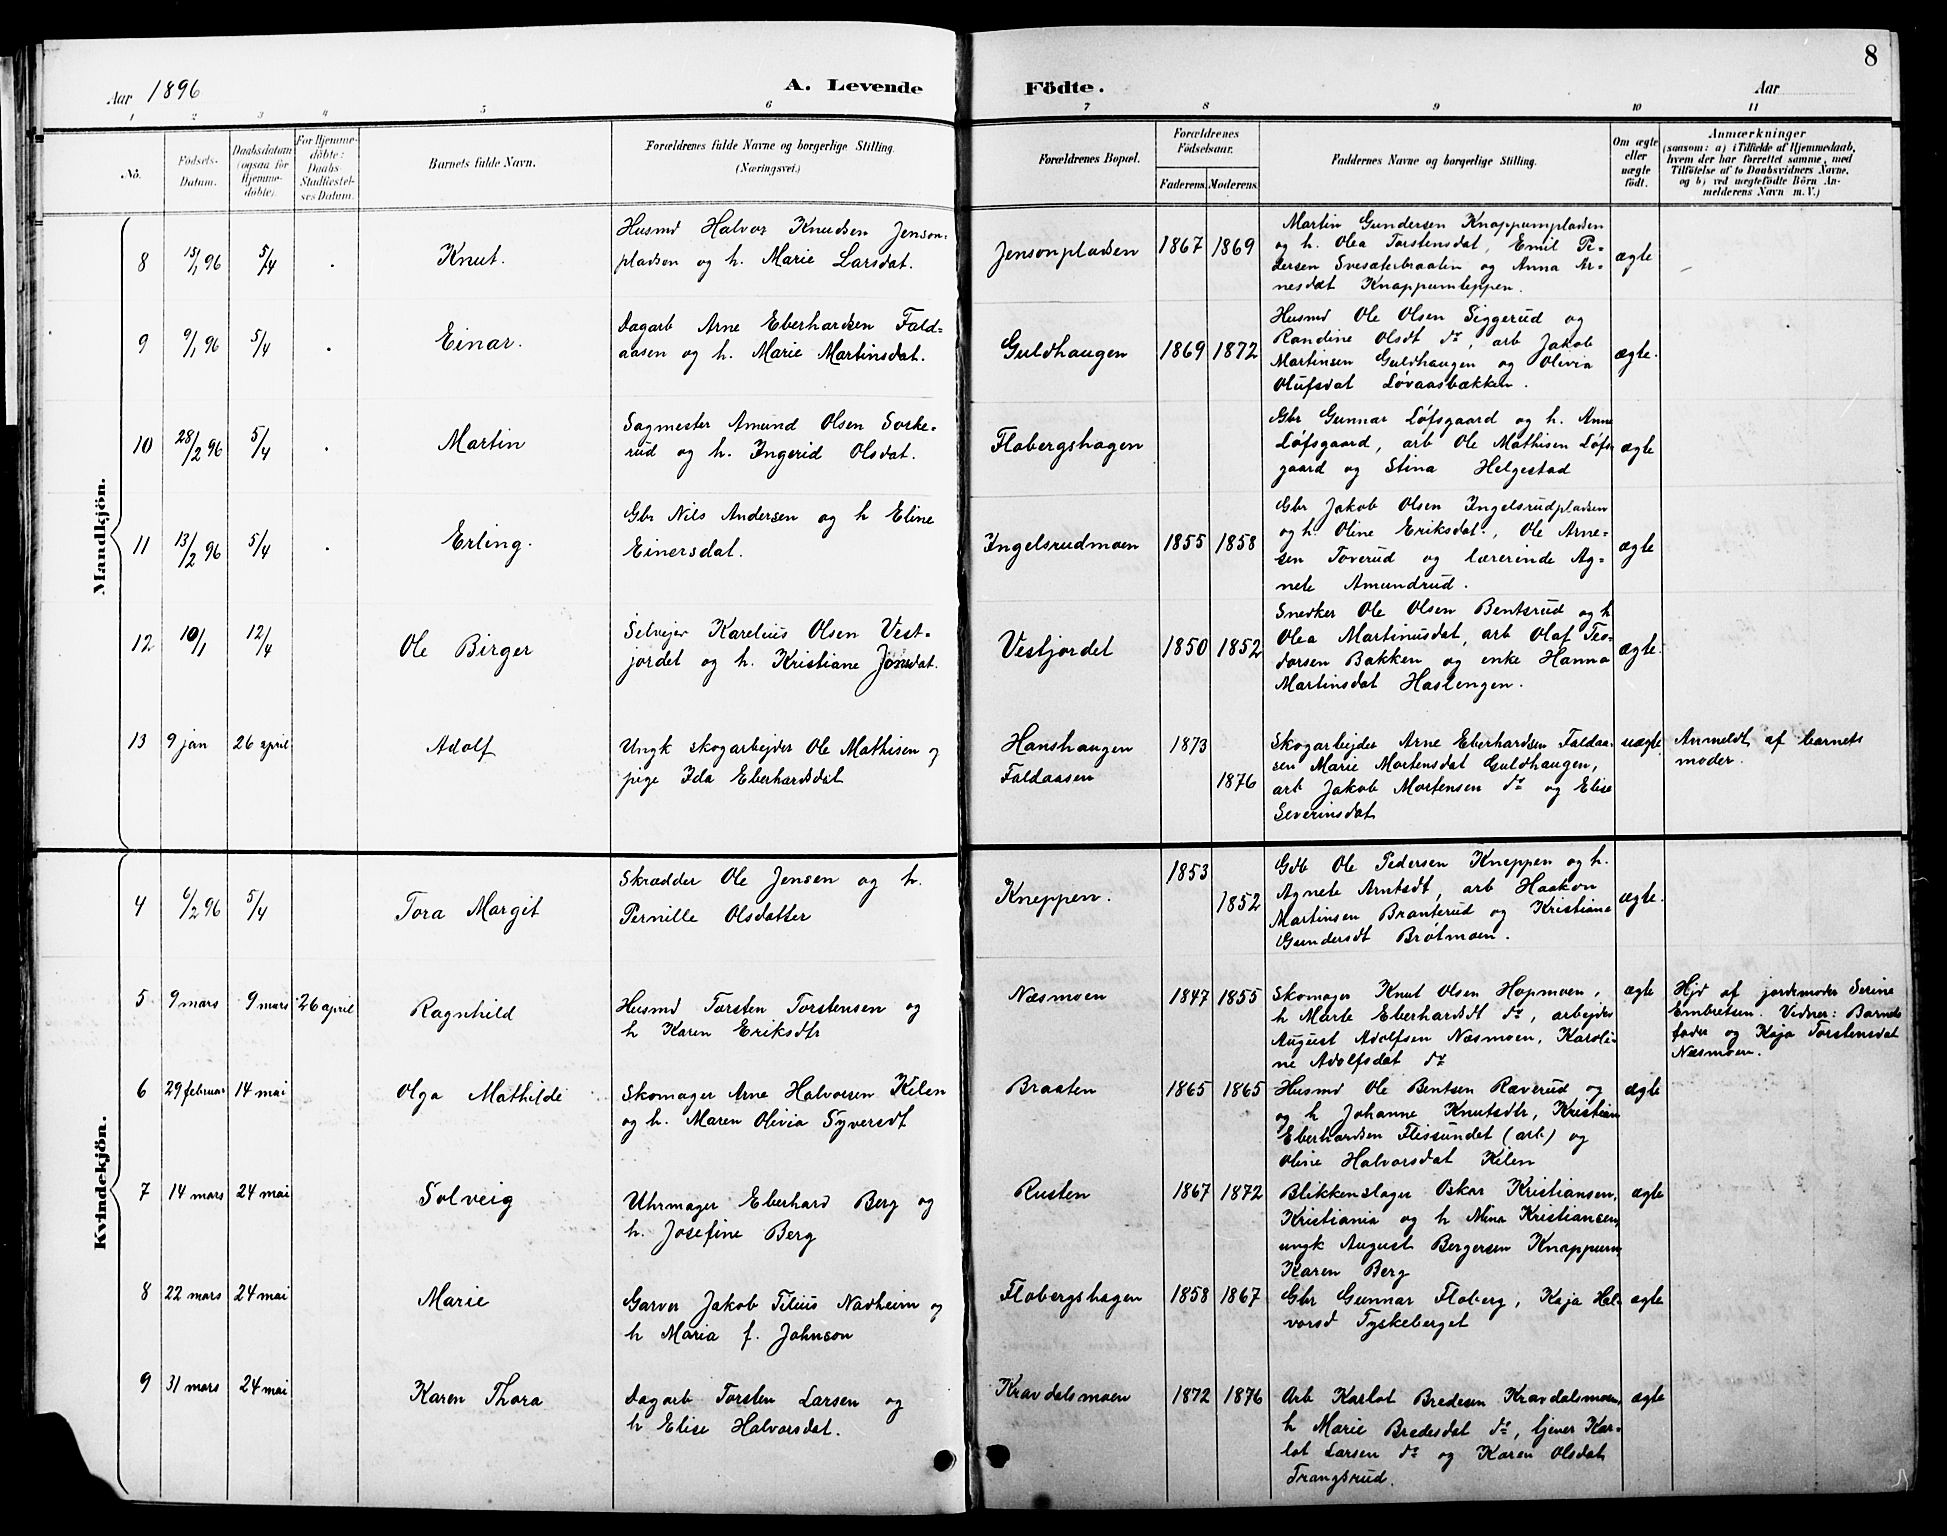 8
Aar 1896
A. Levende Födte.
Aar
1 2 3 4 5 6 7 8 9 10 11
No.
Födsels-Datum.
Daabsdatum (ogsaa for Hjemme-döbte).
For Hjemme-döbte: Daabs-Stadfæstel-ses Datum.
Barnets fulde Navn.
Forældrenes fulde Navne og borgerlige Stilling.
(Næringsvei.)
Forældrenes Bopæl.
Forældrenes Födselsaar.
Faderens. Moderens.
Faddernes Navne og borgerlige Stilling.
Om ægte eller uægte födt.
Anmærkninger
(saasom: a) i Tilfælde af Hjemmedaab,
hvem der har forrettet samme, med
Tilföielse af to Daabsvidners Navne,
og b) ved uægtefödte Börn An-
melderens Navn m. V.)
Mandkjön.
8 15/1 96 5/4 . Knut.
Husmd Halvor Knudsen Jenson-
pladsen og h. Marie Larsdat.
Jensonpladsen 1867 1869
Martin Gundersen Knappumpladsen
og h. Olea Torstensdat, Emil Pe-
dersen Svesæterbraaten og Anna Ar-
nesdat Knappumteppen.
ægte
9 9/1 96 5/4 . Einar.
Dagarb Arne Eberhardsen Fald-
aasen og h. Marie Martinsdat.
Guldhaugen 1869 1872
Husmd Ole Olsen Siggerud og
Randine Olsdt do, arb Jakob
Martinsen Guldhaugen og Olivia
Olufsdat Løvaasbækken.
ægte.
10 28/2 96 5/4 . Martin
Sagmester Amund Olsen Sorke-
rud og h. Ingerid Olsdat.
Flobergshagen
Gbr Gunnar Løfsgaard og h. Anne
Løfsgaard, arb Ole Mathisen Løfs-
gaard og Stina Helgestad
ægte
11 13/2 96 5/4 . Erling.
Gbr Nils Andersen og h Eline
Einersdat.
Ingelsrudmoen 1855 1858
Gbr Jakob Olsen Ingelsrudpladsen
og h. Oline Eriksdat., Ole Arne-
sen Toverud og lærerinde Ag-
nete Amundrud.
ægte
12 10/1 12/4 Ole Birger
Selvejer Karelius Olsen Vest-
jordet og h. Kristiane Jonsdat.
Vestjordet 1850 1852
Snedker Ole Olsen Bentsrud og h
Olea Martinusdat, arb Olaf Teo-
dorsen Bakken og enke Hanna
Martinsdat Haslengen.
ægte.
13 9 jan 26 april Adolf
Ungk skogarbejder Ole Mathisen og
pige Ida Eberhardsdat
Hanshaugen 1873
Faldaasen 1876
Skogarbejder Arne Eberhardsen Faldaa-
sen Marie Mortensdat Guldhaugen,
arb Jakob Mortensen do og Elise
Severinsdat
uægte
Anmeldt af barnets
moder.
Kvindekjön.
4 6/2 96 5/4 Tora Margit
Skrædder Ole Jensen og h.
Pernille Olsdatter
Kneppen. 1853 1852
Gdb Ole Pedersen Kneppen og h.
Agnete Arntsdt, arb Haakon
Martinsen Branterud og Kristiane
Gundersdt Brøtmoen.
ægte.
5 9 mars 9 mars 26 april Ragnhild
Husmd Torsten Torstensen og
h Karen Eriksdtr
Næsmoen 1847 1855
Skomager Knut Olsen Hopmoen,
h Marte Eberhardsdt do, arbejder
August Adolfsen Næsmoen, Karoli-
ne Adolfsdat do
ægte
Hjd af jordemoder Serine
Embretsen. Vidner: Barnets
fader og Kaja Torstensdat
Næsmoen.
6 29 februar 14 mai Olga Mathilde
Skomager Arne Halvorsen Kilen
og h. Maren Olivia Syversdt
Braaten 1865 1865
Husmd Ole Bentsen Ræverud og
og h Johanne Knutsdtr, Kristian
Eberhardsen Flissundet (arb) og
Oline Halvorsdat Kilen
ægte
7 14 mars 24 mai Solveig
Uhrmager Eberhard Berg og
h. Josefine Berg
Rusten 1867 1872
Blikkenslager Oskar Kristiansen,
Kristiania og h Mina Kristiansen,
ungk August Bergersen Knappum
Karen Berg
ægte
8 22 mars 24 mai Marie
Garver Jakob Tilius Nadheim og
h Maria f. Johnson
Flobergshagen 1858 1867
Gbr Gunnar Floberg, Kaja Hal-
vorsd Tyskeberget
ægte
9 31 mars 24 mai Karen Thora
Dagarb Torsten Larsen og
h Elise Halvorsdat.
Kravdalsmoen 1872 1876
Arb Karlot Bredesen Kravdalsmoen,
h Marie Bredesdat do, tjener Kar-
lot Larsen do og Karen Olsdat
Trangsrud.
ægte